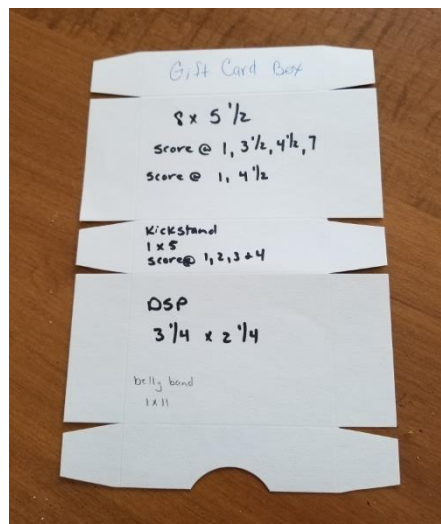 Gift Card Box
8 x 5 1/2
score @ 1, 3 1/2, 4 1/2, 7
score @ 1, 4 1/2
Kickstand
1 x 5
score@ 1,2,3 & 4
DSP
3 1/4 x 2 1/4
belly band
1 x 11